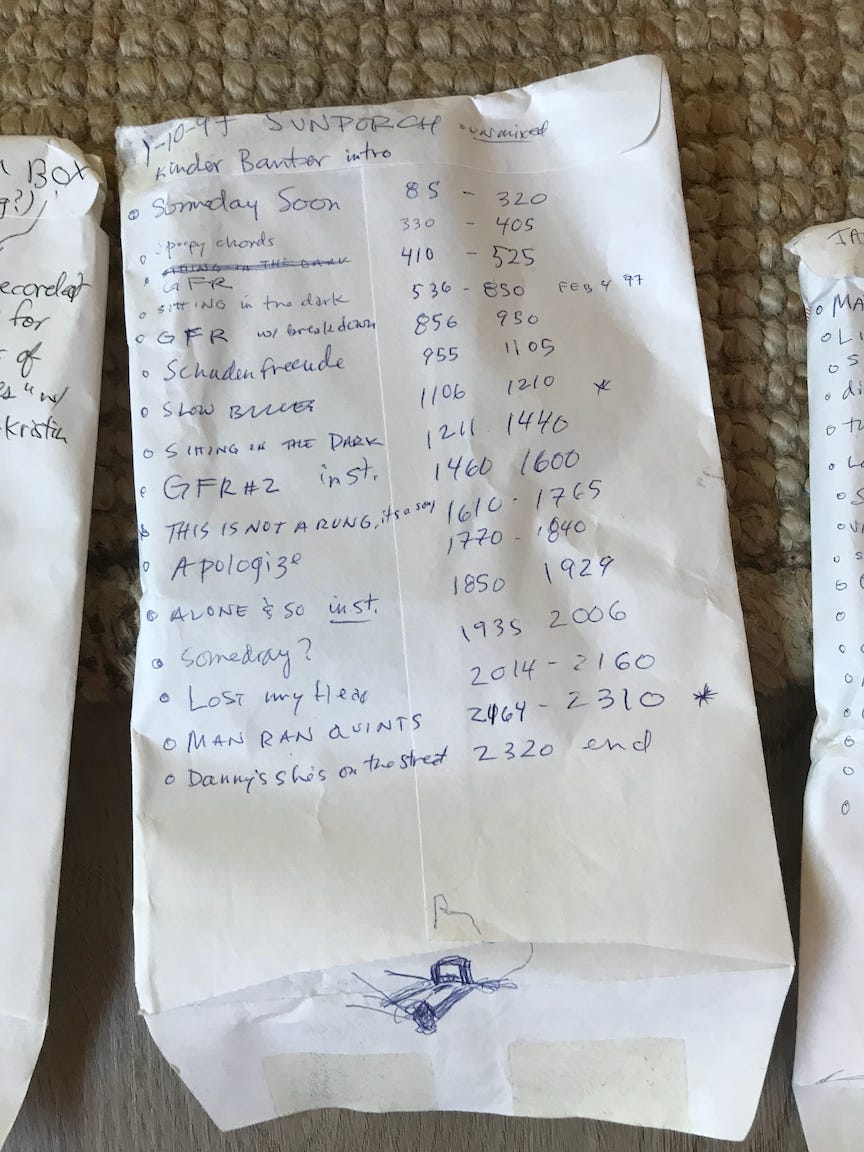 1-10-97 SUNPORCH • unmixed
Kinder Banter intro
Someday Soon 85 - 320
spoopy chords 330 - 405
GFR 410 - 525
SITTING in the dark 536 - 850 FEB 4 97
GFR w/ breakdown 856 950
Schadenfreude 955 1105
SLOW 1106 1210 *
SITTING IN THE DARK 1211 1440
GFR #2 inst. 1460 1600
THIS IS NOT A RUNG, it's a song 1610 - 1765
Apologize 1770 - 1840
ALONE & SO inst. 1850 1929
Someday? 1935 2006
LOST my Head 2014 - 2160
MAN RAN QUINTS 2164 - 2310 *
Danny's She's on the street 2320 end
BOX
g?)
ecorded
for
of
es" w/
Kristin
JA
MA
LI
S
di